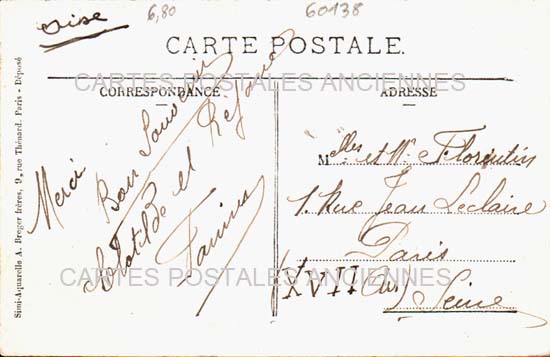 Oise
6,80
60138
CARTE POSTALE.
CARTES POSTALES ANCIENNES
CORRESPONDANCE
ADRESSE
Simi-Aquarelle A. Breger frères, 9, rue Thénard. Paris - Déposé
Merci
Bon Souvenir
Clotilde et Réjane
Melles et Mr Florentin
1. Rue Jean Leclaire
Paris
XVII
Seine
CARTES POSTALES ANCIENNES